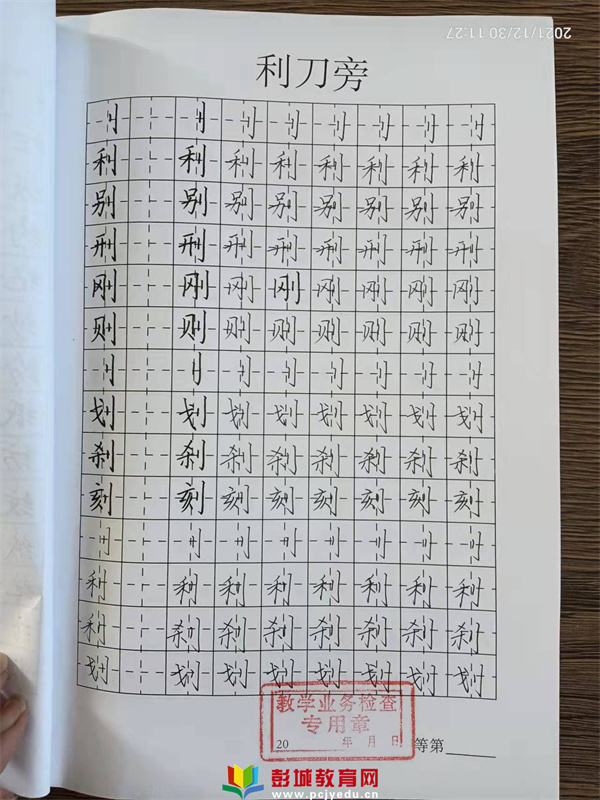 2021/12/30 11:27
利刀旁
刂 刂 刂 刂 刂 刂 刂 刂
利 利 利 利 利 利 利 利
别 别 别 别 别 别 别 别
刑 刑 刑 刑 刑 刑 刑 刑
刚 刚 刚 刚 刚 刚 刚 刚
则 则 则 则 则 则 则 则
刂 刂 刂 刂 刂 刂 刂 刂
划 划 划 划 划 划 划 划
刹 刹 刹 刹 刹 刹 刹 刹
刻 刻 刻 刻 刻 刻 刻 刻
刂 刂 刂 刂 刂 刂 刂 刂
利 利 利 利 利 利 利 利
利 刹 刹 刹 刹 刹 刹 刹
划 划 划 划 划 划 划 划
教学业务检查
专用章
20 年 月 日 等第
彭城教育网
www.pcjyedu.cn